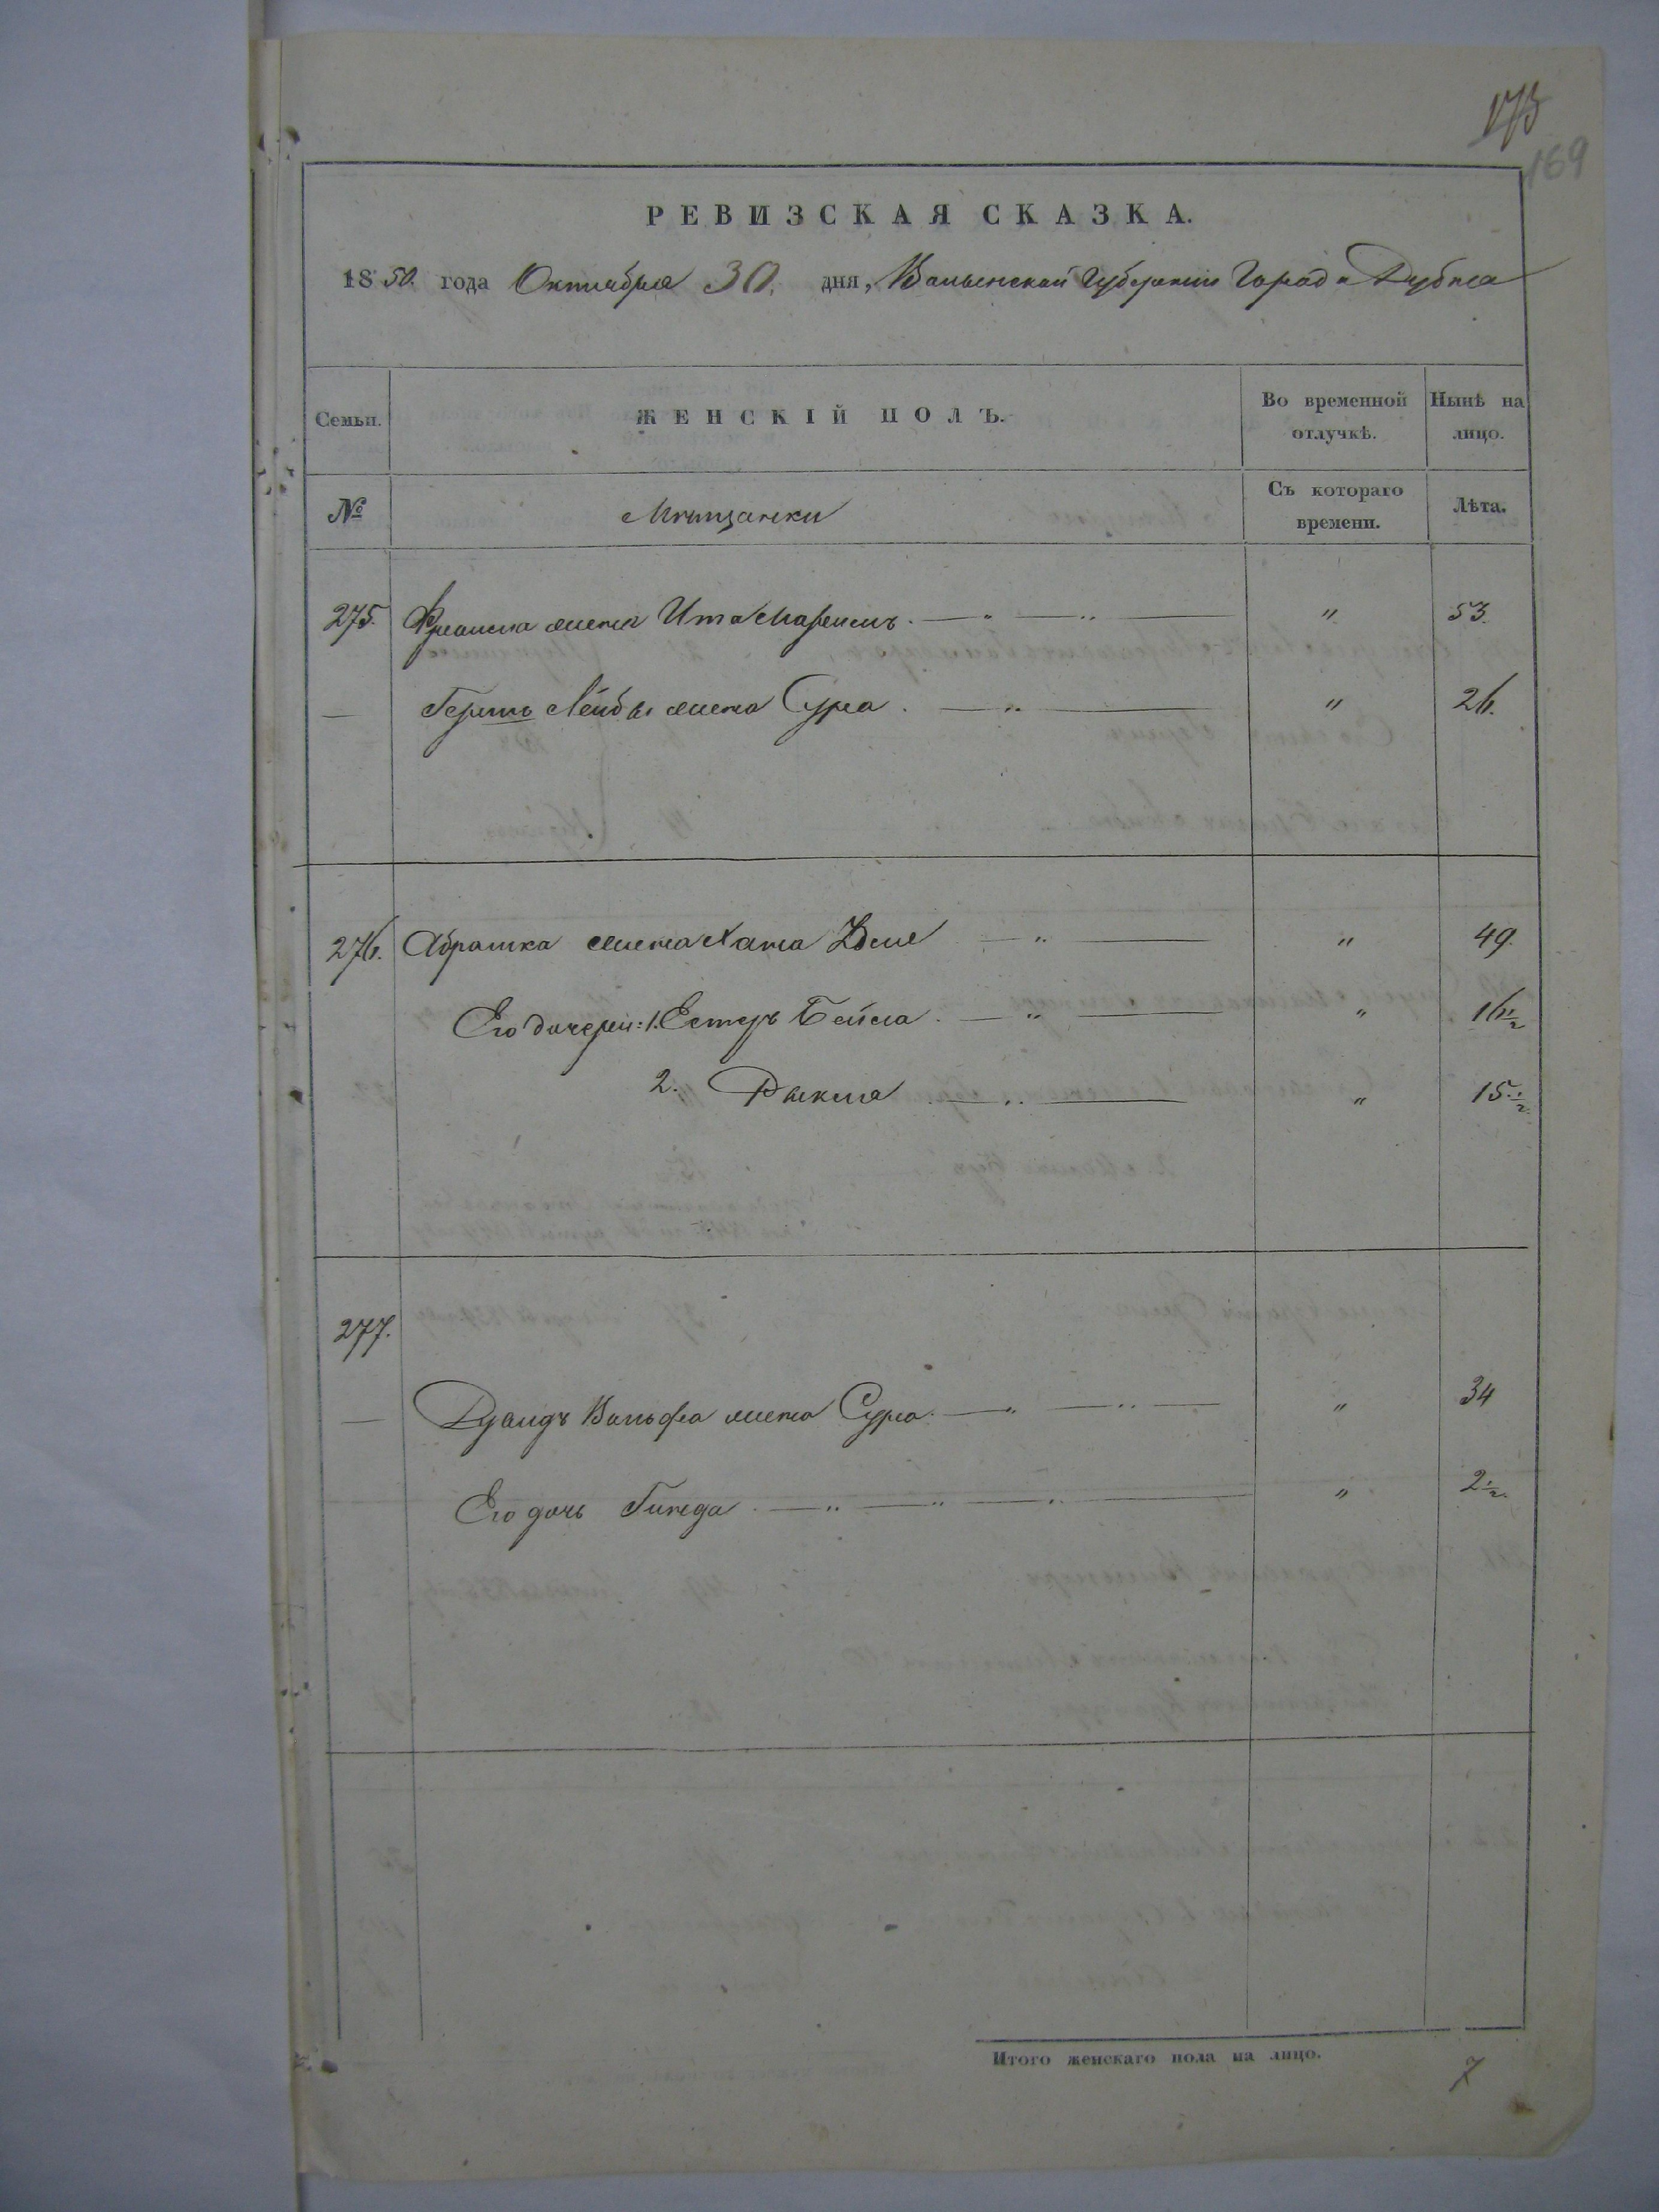 173
169
РЕВИЗСКАЯ СКАЗКА.
1850. года Октября 30. дня, Волынской Губернии Города Дубна
Семьи. ЖЕНСКІЙ ПОЛЪ. Во временной отлучкѣ. Нынѣ на лицо.
№ Мещанки Съ котораго времени. Лѣта.
275. жена Ита " 53.
— Герша Лейбы жена Сура. " 26.
276. Абрамка жена Хана " 49.
Его дочери: 1. Естеръ Бейла. " 16 1/2
2. Рыкля " 15 1/2
277.
— Вольфа жена Сура. " 34
Его дочь Гинеда " 2 1/2.
Итого женскаго пола на лицо. 7